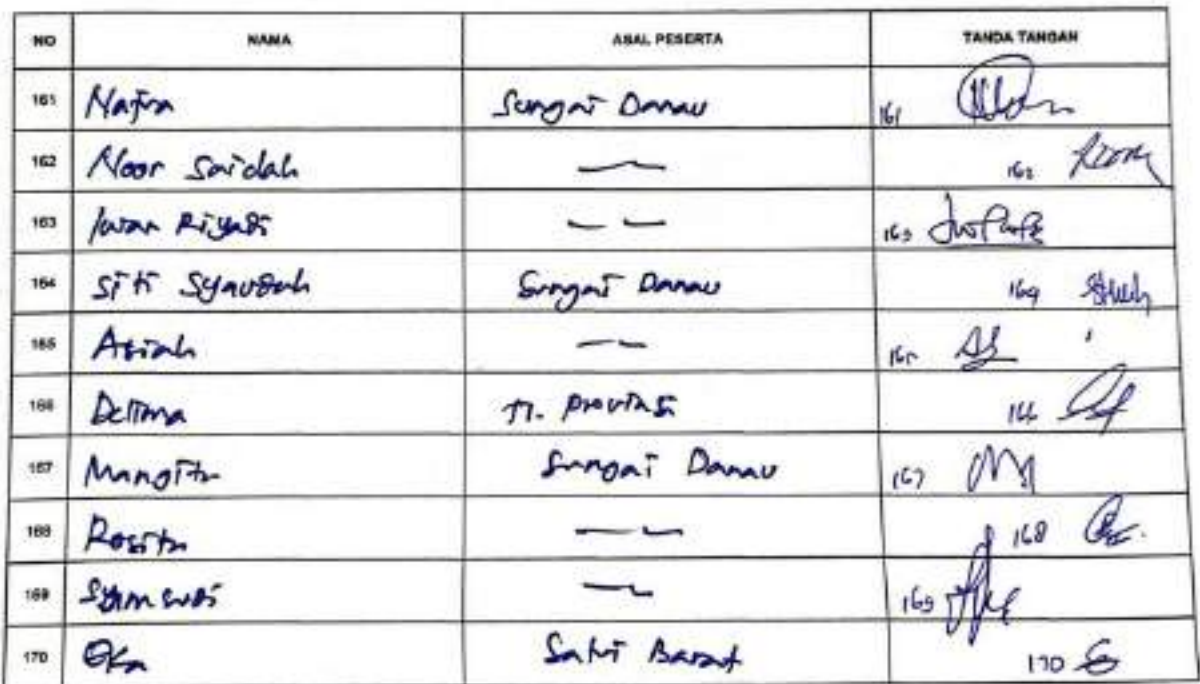 NO NAMA ASAL PESERTA TANDA TANGAN
161 Najra Sungai Danau 161
162 Noor Saidah 162
163 Iwan Riyadi 163
164 Siti Syauqah Sungai Danau 164
165 Asiah 165
166 Delima Jl. Provinsi 166
167 Mangitu Sungai Danau 167
168 Rosita 168
169 Syamsudi 169
170 Oka Satui Barat 170